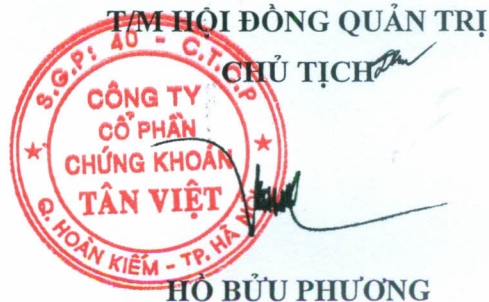 T/M HỘI ĐỒNG QUẢN TRỊ
CHỦ TỊCH
S.G.P: 40 - C.T.C.P
CÔNG TY
CỔ PHẦN
CHỨNG KHOÁN
TÂN VIỆT
Q. HOÀN KIẾM - TP. HÀ
HỒ BỬU PHƯƠNG